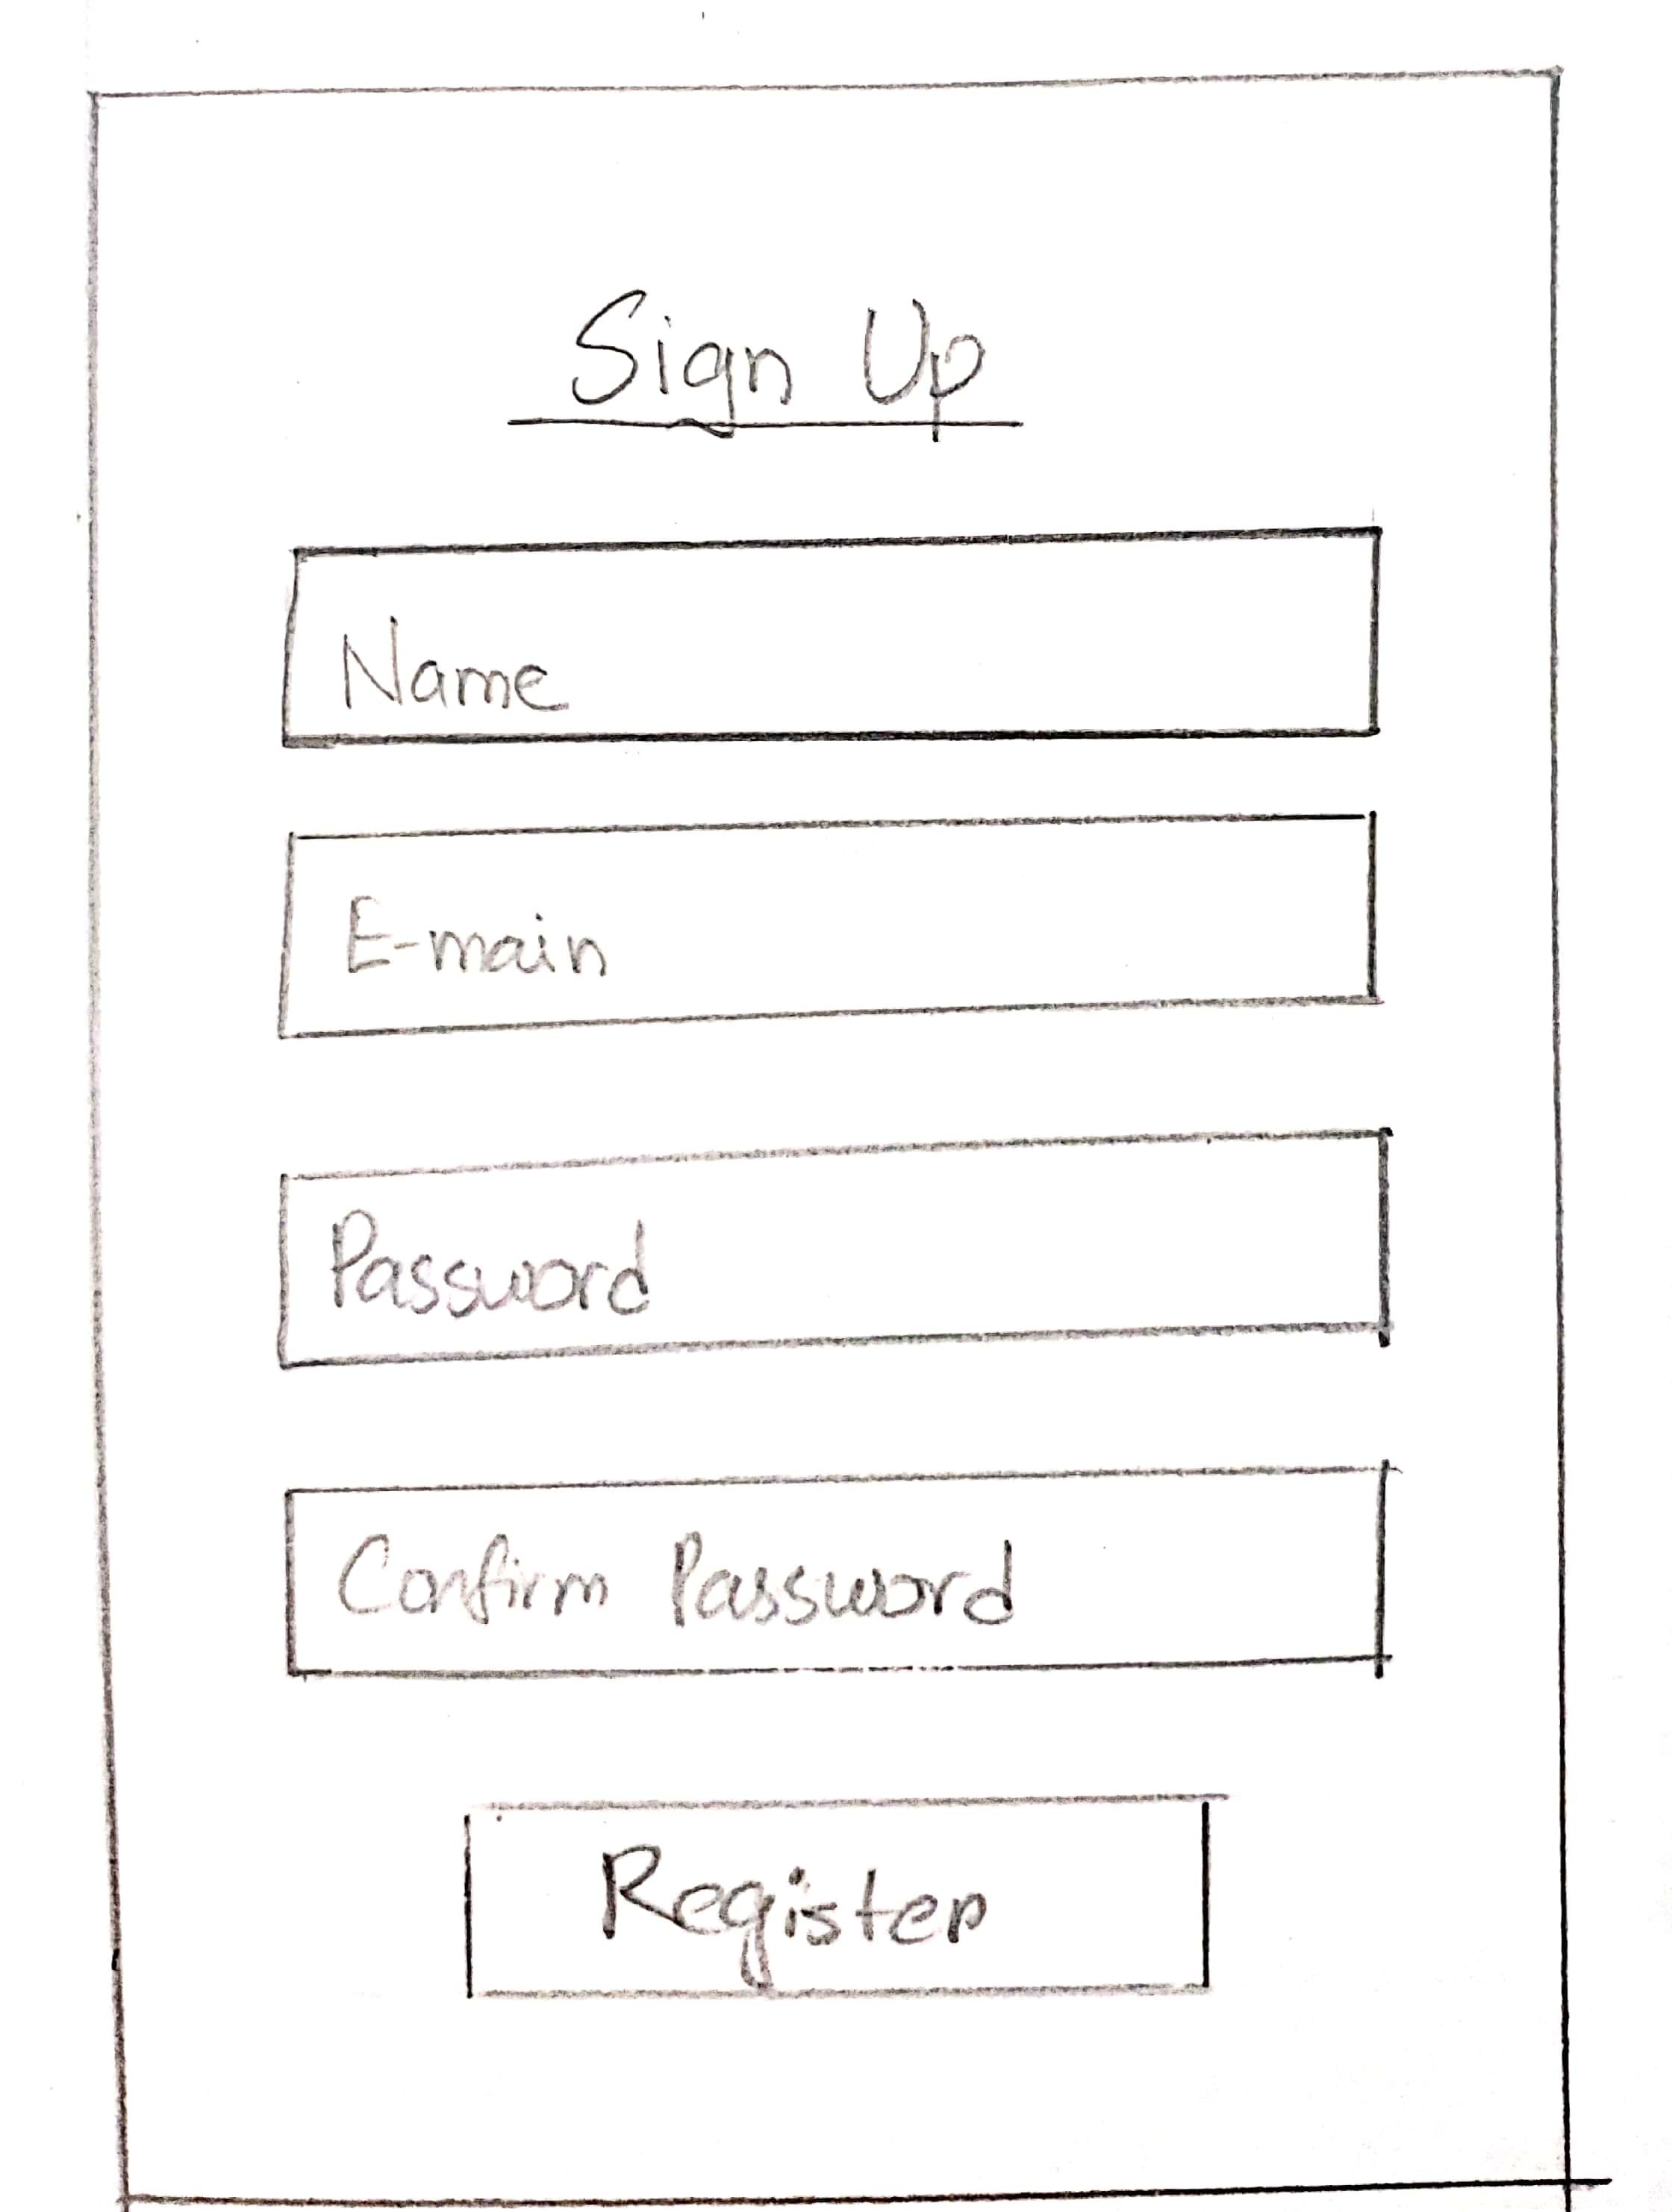 Sign Up
Name
E-main
Password
Confirm Password
Register